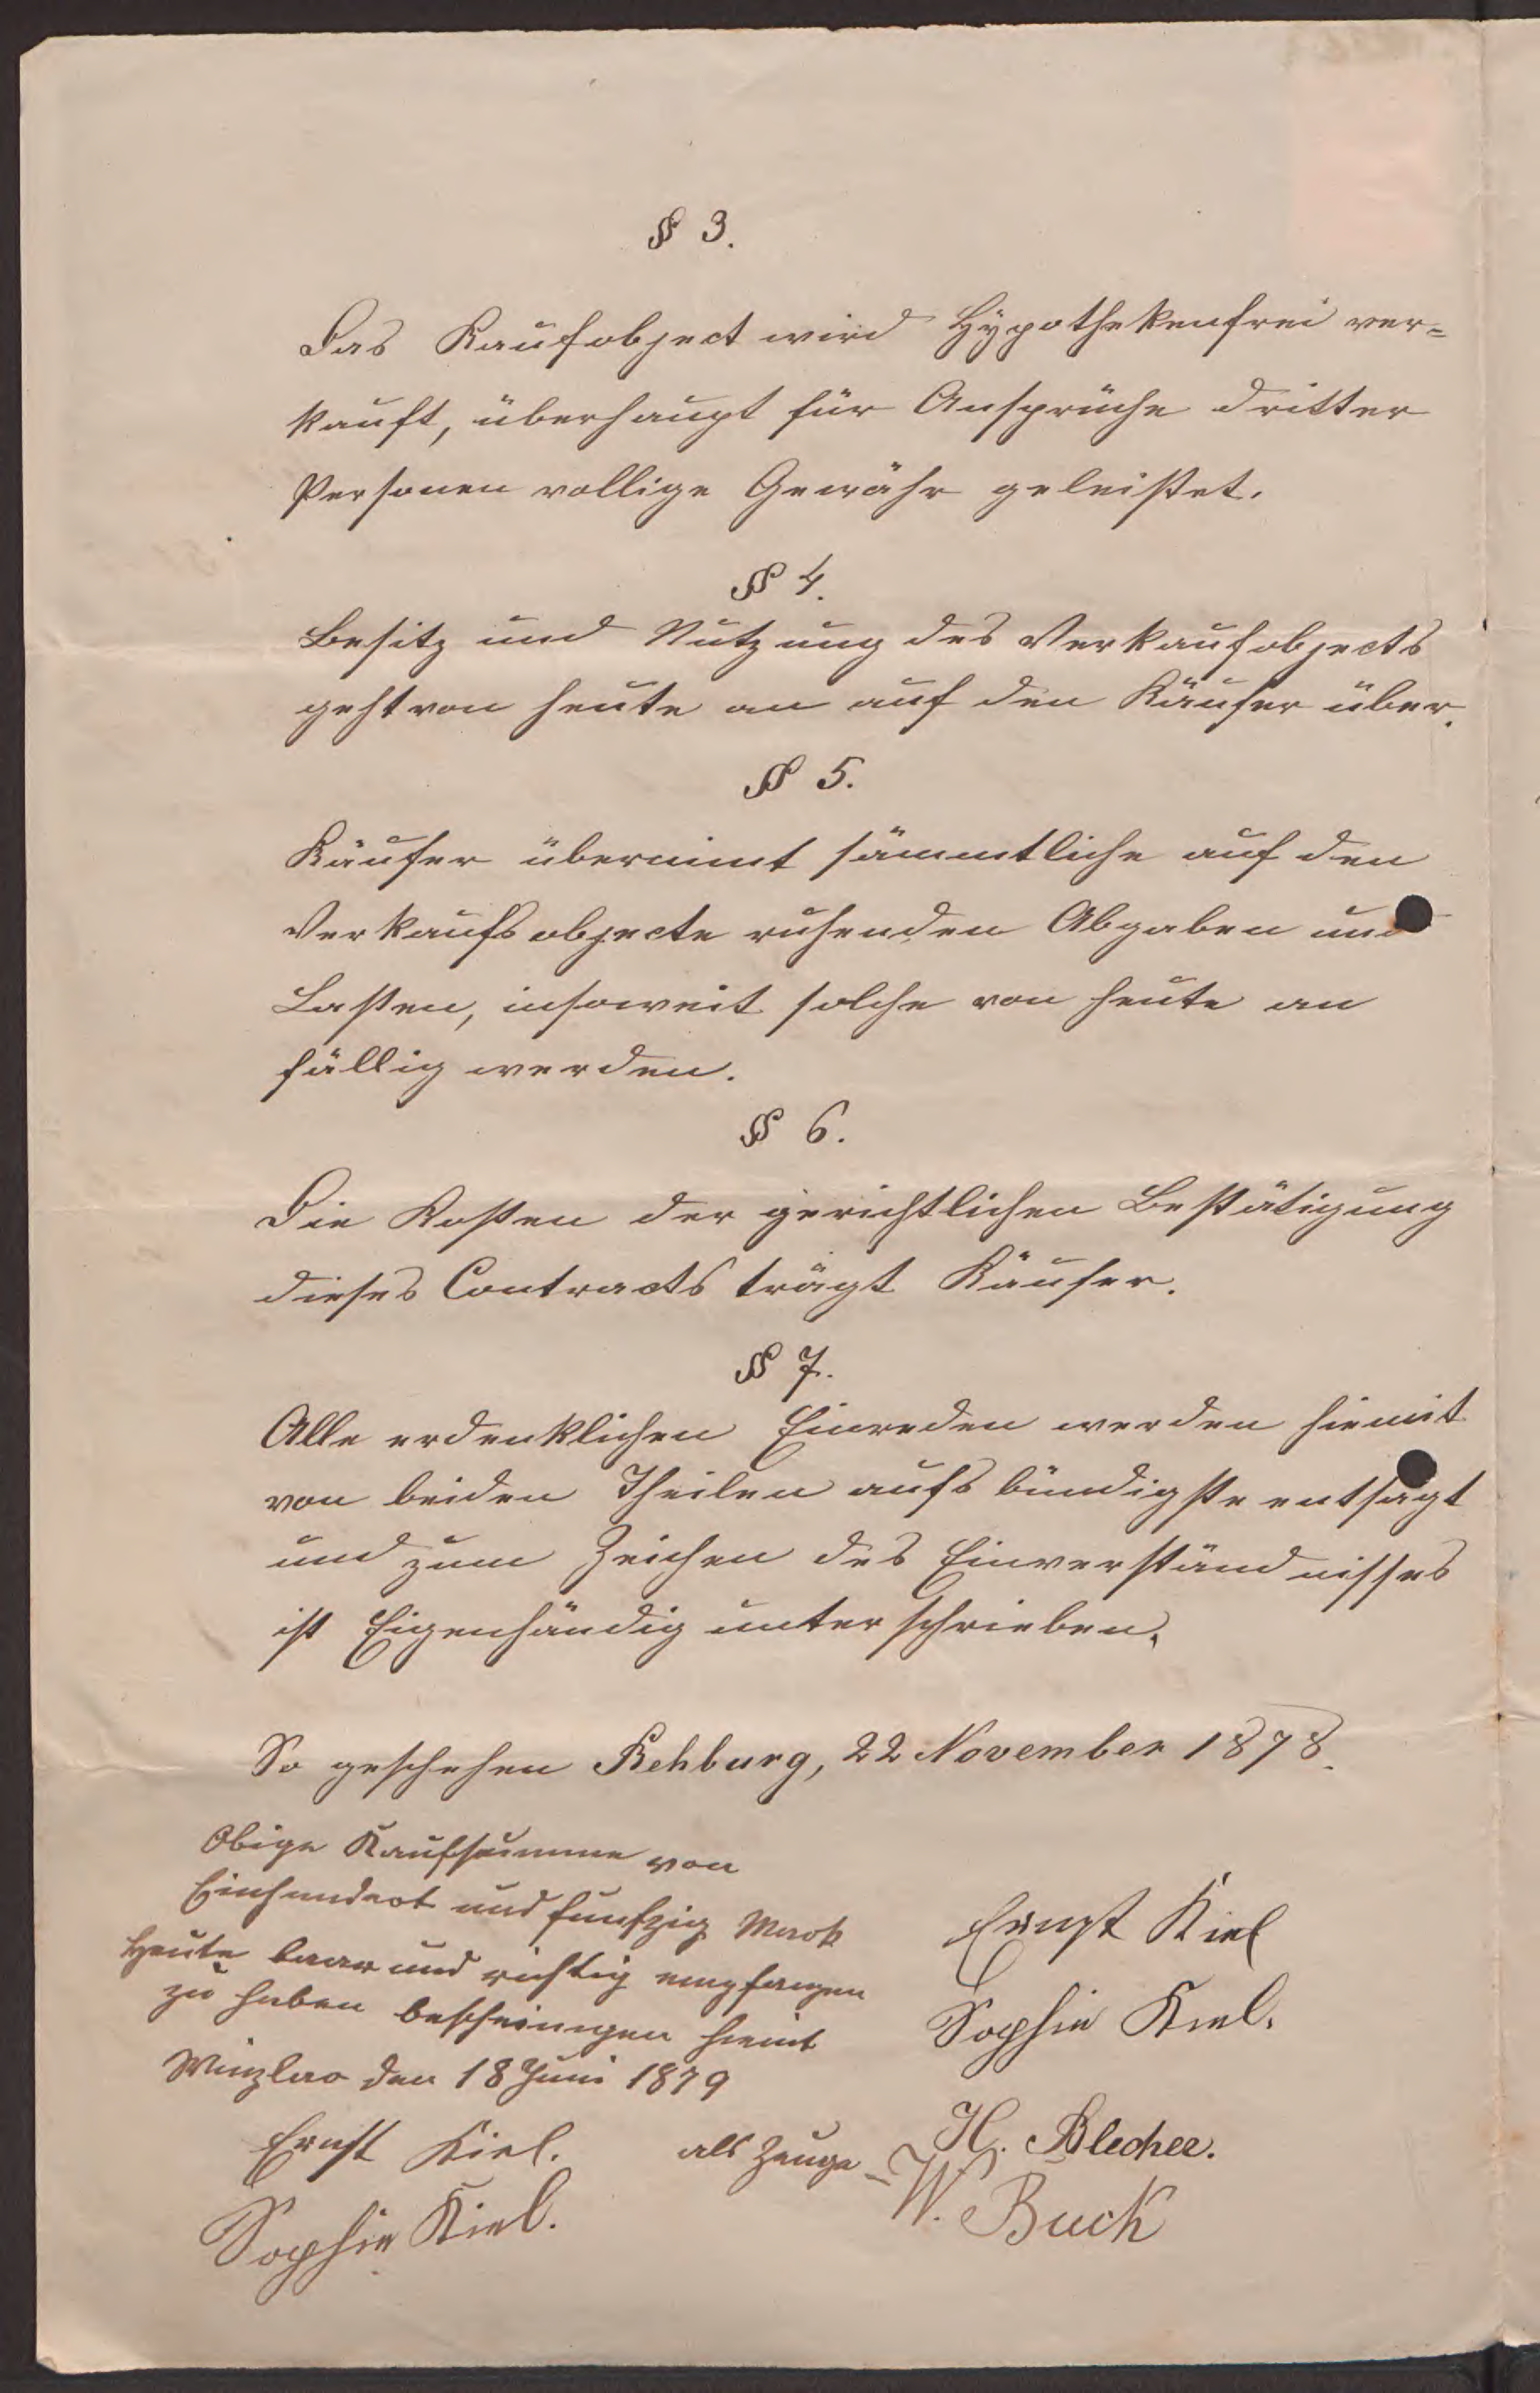 § 3.
Das Kaufobject wird Hÿpothekenfrei ver=
kauft, überhaupt für Ansprüche dritter
Personen vollige Gewähr geleistet.
§ 4.
Besitz und Nutzung des Verkaufobjects
geht von heute an auf den Käufer über.
§ 5.
Käufer übernimt sämmtliche auf den
Verkaufsobjecte ruhenden Abgaben und
Lasten, insoweit solche von heute an
fällig werden.
§ 6.
Die Kosten der gerichtlichen Bestätigung
dieses Contracts trägt Käufer.
§ 7.
Alle erdenklichen Einreden werden hiemit
von beiden Theilen aufs bündigste entsagt
und zum Zeichen des Einverständnisses
ist Eigenhändig unterschrieben.
So geschehen Rehburg, 22 November 1878.
Obige Kaufsumme von
Einhundert und funfzig Mark
Heute baar und richtig empfangen
zu haben bescheinigen hiemit
Winzlar den 18 Juni 1879
Ernst Kiel.
Sophie Kiel.
Ernst Kiel
Sophie Kiel.
als Zeuge - H. Blecher.
W. Buck